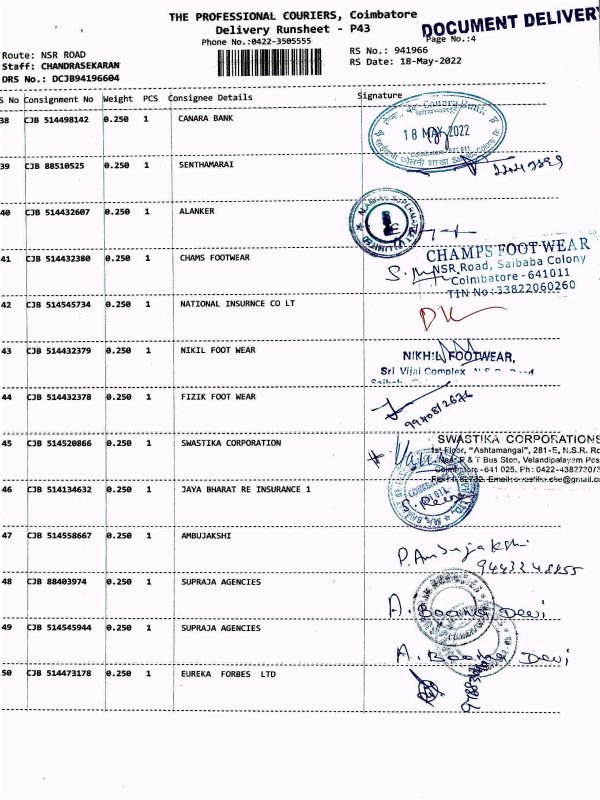 THE PROFESSIONAL COURIERS, Coimbatore
DOCUMENT DELIVERY
Delivery Runsheet - P43
Page No.:4
Phone No.:0422-3505555
Route: NSR ROAD
RS No.: 941966
Staff: CHANDRASEKARAN
RS Date: 18-May-2022
DRS No.: DCJB94196604
S No Consignment No Weight PCS Consignee Details Signature
38 CJB 514498142 0.250 1 CANARA BANK
Canara Bank
18 MAY 2022
39 CJB 88510525 0.250 1 SENTHAMARAI
40 CJB 514432607 0.250 1 ALANKER
41 CJB 514432380 0.250 1 CHAMS FOOTWEAR
CHAMPS FOOT WEAR
NSR Road, Saibaba Colony
Coimbatore - 641011
TIN No:33822060260
42 CJB 514545734 0.250 1 NATIONAL INSURNCE CO LT
43 CJB 514432379 0.250 1 NIKIL FOOT WEAR
NIKHIL FOOTWEAR,
Sri Vijai Complex
44 CJB 514432378 0.250 1 FIZIK FOOT WEAR
9940812676
45 CJB 514520866 0.250 1 SWASTIKA CORPORATION
SWASTIKA CORPORATIONS
1st Floor, "Ashtamangal", 281-E, N.S.R. Ro
Near P & T Bus Stop, Velandipalayam Pos
Coimbatore -641 025. Ph: 0422-4382730/3
46 CJB 514134632 0.250 1 JAYA BHARAT RE INSURANCE 1
47 CJB 514558667 0.250 1 AMBUJAKSHI
P. Ambujakshi
9443248855
48 CJB 88403974 0.250 1 SUPRAJA AGENCIES
A. Devi
49 CJB 514545944 0.250 1 SUPRAJA AGENCIES
A. Devi
50 CJB 514473178 0.250 1 EUREKA FORBES LTD